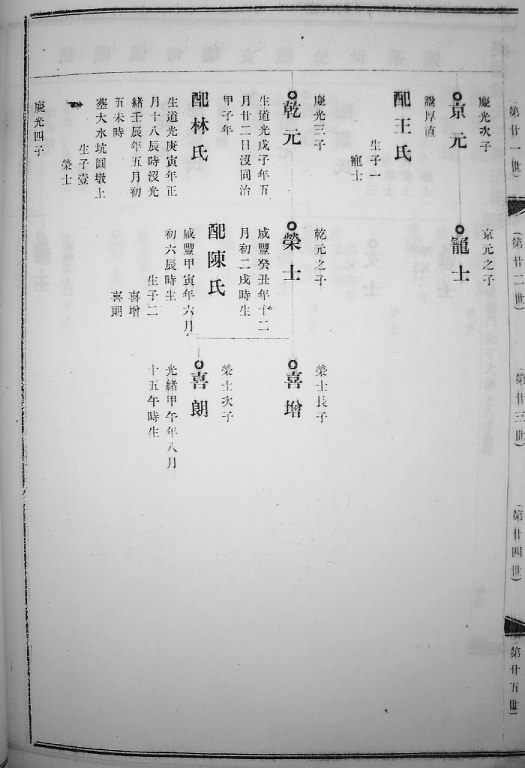 第廿一世
(第廿二世)
第廿三世
(第廿四世)
第廿五世
慶光次子
京元
厚直
配王氏
生子一
寵士
慶光三子
乾元
生道光戊子年五
月廿二日沒同治
甲子年
配林氏
生道光庚寅年正
月十八辰時沒光
緒壬辰年五月初
五未時
墓大水坑圓墩上
生子壹
榮士
慶光四子
京元之子
寵士
乾元之子
榮士
咸豐癸丑年十二
月初二戌時生
配陳氏
咸豐甲寅年六月
初六辰時生
生子二
喜增
喜朗
榮士長子
喜增
榮士次子
喜朗
光緒甲午年八月
十五午時生